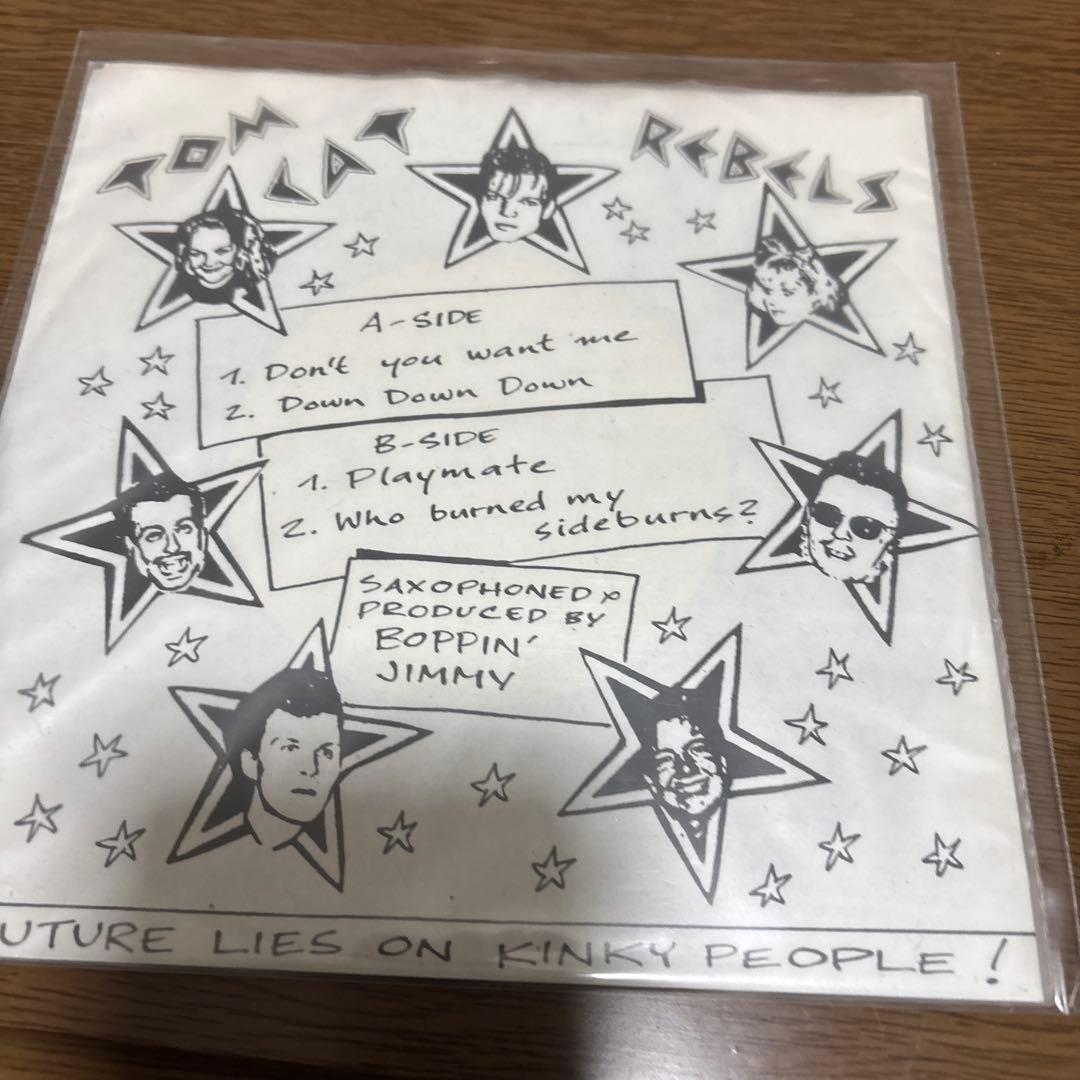 TOM CAT REBELS
A-SIDE
1. Don't you want me
2. Down Down Down
B-SIDE
1. Playmate
2. Who burned my
sideburns?
SAXOPHONED &
PRODUCED BY
BOPPIN'
JIMMY
UTURE LIES ON KINKY PEOPLE!